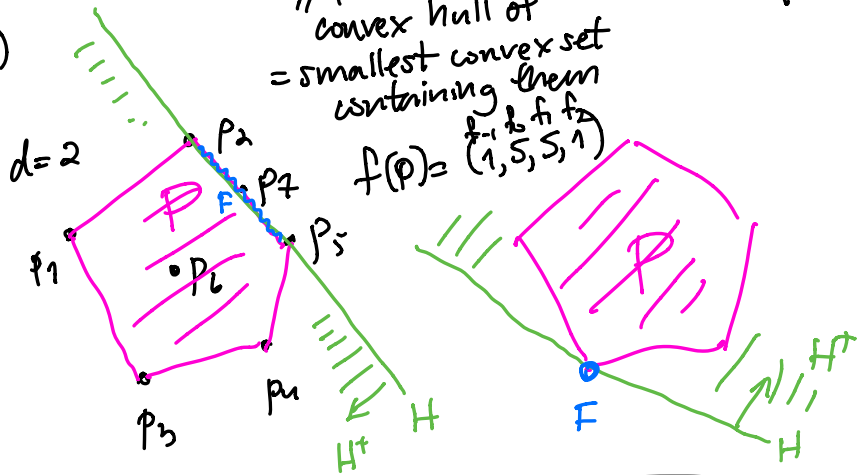 convex hull of
= smallest convex set
containing them
d=2
f₋₁ f₀ f₁ f₂
f(P)= (1,5,5,1)
p₂
P
F
p₇
p₁
p₆
p₅
p₃
p₄
H⁺
H
P
F
H⁺
H